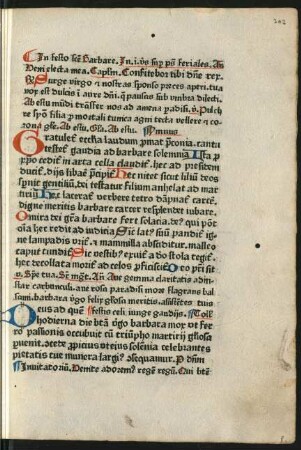 202
In festo scẽ Barbare. In. i. vs̃ suᵖ pᵒ feriales. Añ
Veni electa mea. Captm̃. Confitebor tibi dñe rex.
Surge virgo et nostras sponso preces aperi. tua
vox est dulcis ĩ aure dñi. q̃ pausas sub umbra dilecti.
Ab estu mũdi trãsfer nos ad amena padisi.
spõ filia p mortali tunica agni tecta vellere et co
rona gl'e. Ab estu. Gl'a. Ab estu. Ymnus
Gratulet ecc'ia laudum
testet' gaudia ad barbare solemnia Ista p
ppo edit' in arca rella claudit'. hec ad presidem
ducit'. dijs libare p̃cipit' Hec nitet sicut liliũ deos
spnit gentiliũ. dei testatur filium anhelat ad mar
tiriũ Hec lacerat' verbere tetro dãpnat' carcẽ.
digne meritis barbare carcer resplendet iubare.
mira dei grã barbara fert solaria. deˀ qui põt
qm̃ hec redit ad iudicia Sic lat' sm̃ pandit' igne
lampadis urit'. et mammilla absiditur. malleo
caput tundit' Sic vestibˀ exuit' a deo stola tegit'.
hec decollata morit' ad celos pficiscit' Oro pr̃i si.
v. Spe tua. Sr̃ mg̃t. Añ Aue gemma claritatis ad in
star carbunculi. aue rosa paradisi more flagrans bal
sami. barbara v̓go felix gl'iosa meritis. assistetes tuis
Deus ad quẽ festis celi iunge gaudijs. Coll'
hodierna die btã v̓go barbara mor. ut fero
passionis occubuit cũ triũpho martirij gl'iosa
puenit. octede ppicius ut eius solẽnia celebrantes
pietatis tue munera largiˀ ɔsequamur. P dñm
Inuitatoriũ. Venite adoremˀ regẽ regũ. Qui btẽ